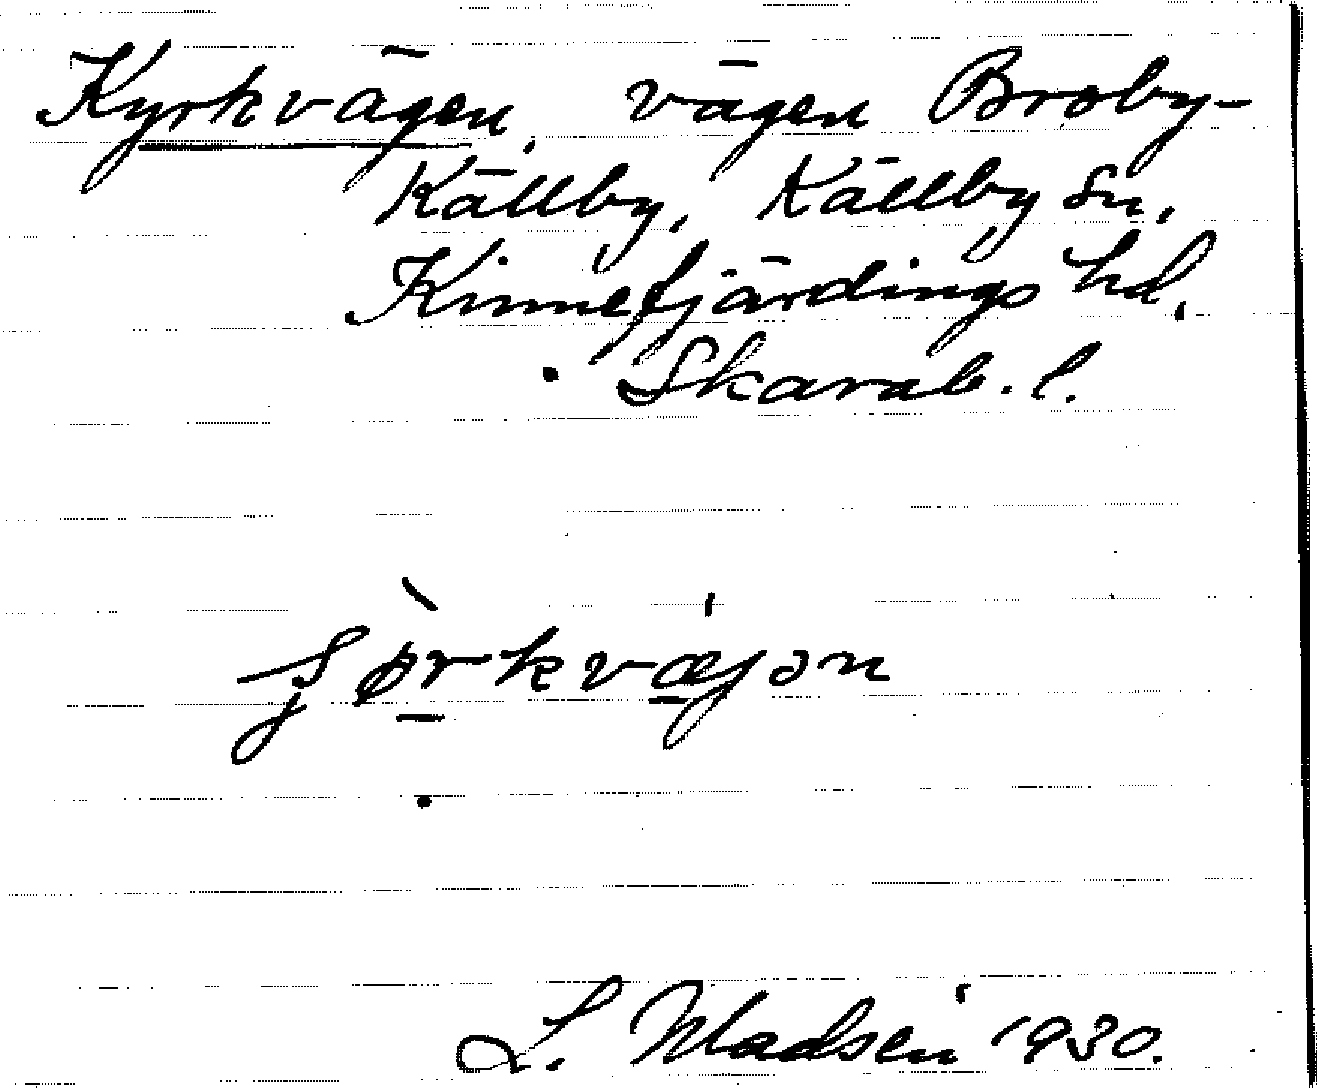 Kyrkvägen, vägen Broby-
Källby, Källby sn,
Kinnefjärdings hd,
Skarab. l.
L. Madsen 1930.